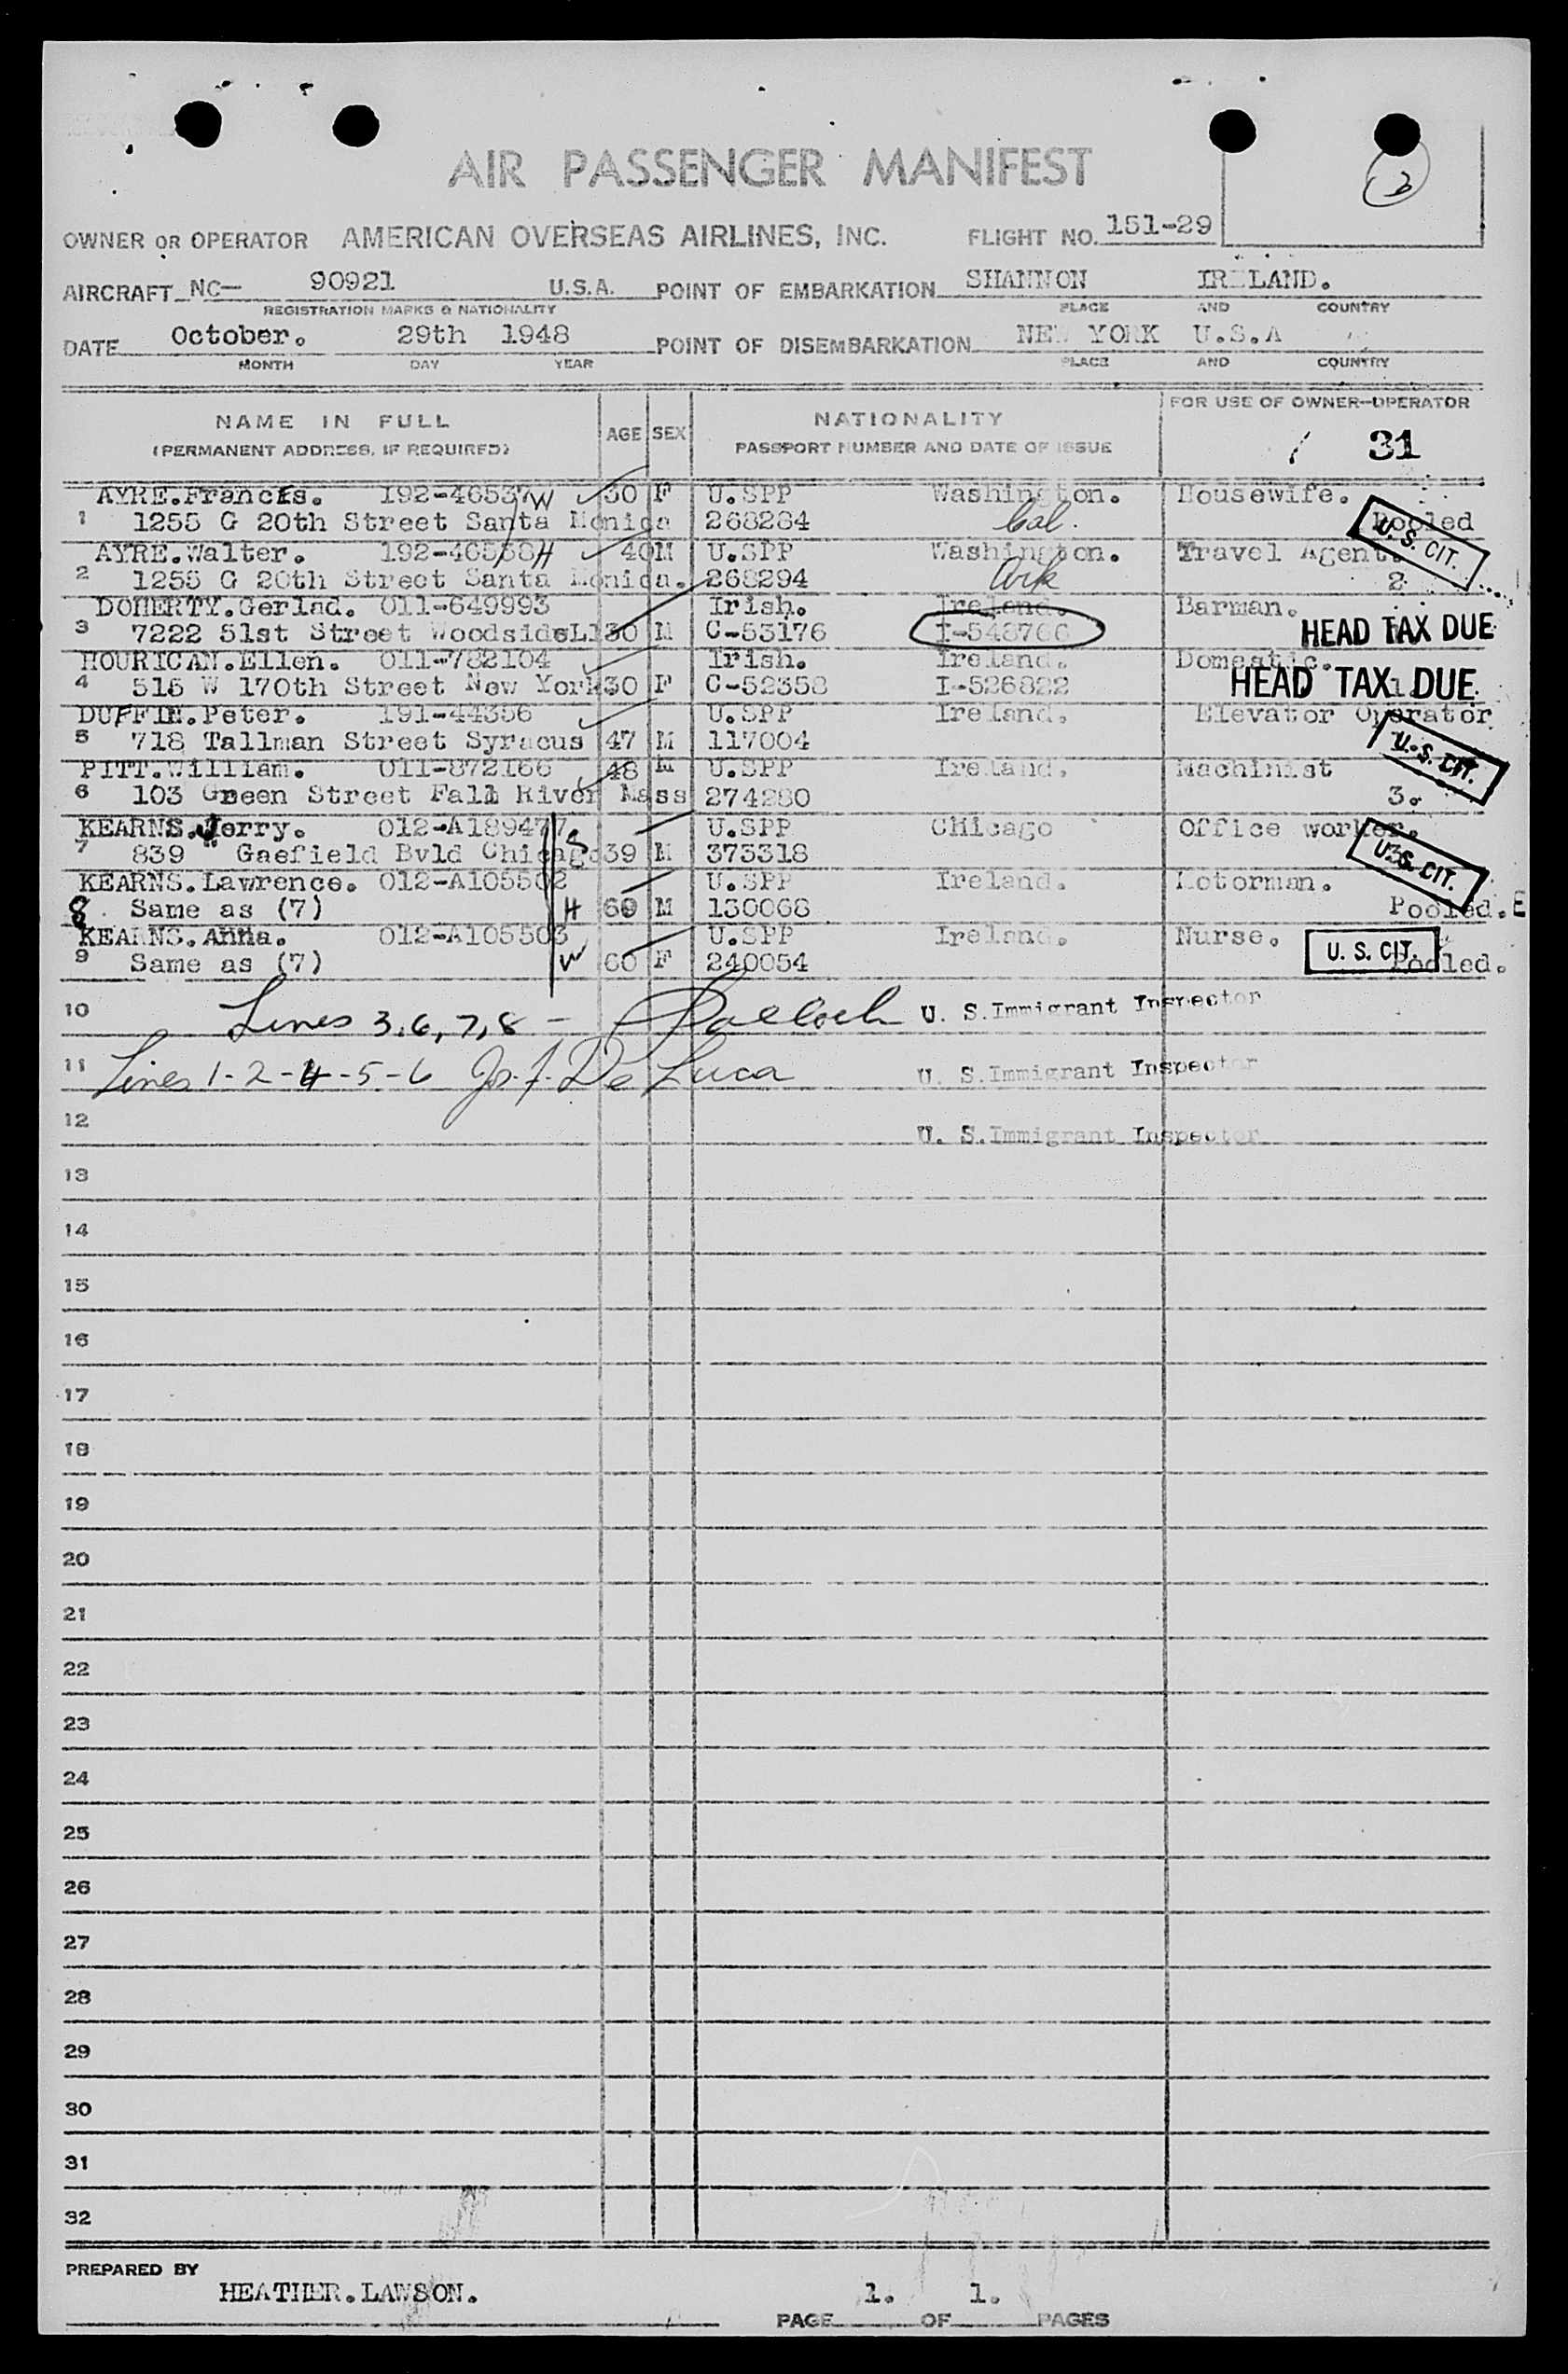 AIR PASSENGER MANIFEST
OWNER OR OPERATOR AMERICAN OVERSEAS AIRLINES, INC. FLIGHT NO. 151-29
AIRCRAFT NC— 90921 U.S.A. POINT OF EMBARKATION SHANNON IRELAND.
REGISTRATION MARKS & NATIONALITY PLACE AND COUNTRY
DATE October. 29th 1948 POINT OF DISEMBARKATION NEW YORK U.S.A
MONTH DAY YEAR PLACE AND COUNTRY
NAME IN FULL AGE SEX NATIONALITY FOR USE OF OWNER-OPERATOR
(PERMANENT ADDRESS, IF REQUIRED) PASSPORT NUMBER AND DATE OF ISSUE 31
AYRE.Francis. 192-46537 W 30 F U.SPP Washington. Housewife.
1 1255 G 20th Street Santa Monica 268284 Cal. Pooled U. S. CIT.
AYRE.Walter. 192-46538 H 40 M U.SPP Washington. Travel Agent.
2 1255 G 20th Street Santa Monica. 268294 Ark 2
DOHERTY.Gerlad. 011-649993 Irish. Ireland. Barman.
3 7222 51st Street Woodside LI 30 M C-53176 I-548766 HEAD TAX DUE
HOURICAN.Ellen. 011-782104 Irish. Ireland. Domestic.
4 515 W 170th Street New York 30 F C-52358 I-526822 1 HEAD TAX DUE
DUFFIN.Peter. 191-44356 U.SPP Ireland. Elevator Operator
5 718 Tallman Street Syracus 47 M 117004 U. S. CIT.
PITT.William. 011-872166 48 M U.SPP Ireland. Machinist
6 103 Green Street Fall River Mass 274280 3.
KEARNS.Jerry. 012-A189477 S U.SPP Chicago Office worker.
7 839 Gaefield Bvld Chicago 39 M 373318 U. S. CIT.
KEARNS.Lawrence. 012-A105502 U.SPP Ireland. Motorman.
8 Same as (7) H 60 M 130068 Pooled. E
KEARNS.Anna. 012-A105503 U.SPP Ireland. Nurse.
9 Same as (7) W 60 F 240054 U. S. CIT. Pooled.
10 Lines 3,6,7,8 - U. S. Immigrant Inspector
11 Lines 1-2-4-5-6 Jo. F. De Luca U. S. Immigrant Inspector
12 U. S. Immigrant Inspector
13
14
15
16
17
18
19
20
21
22
23
24
25
26
27
28
29
30
31
32
PREPARED BY
HEATHER.LAWSON.
PAGE 1. OF 1. PAGES